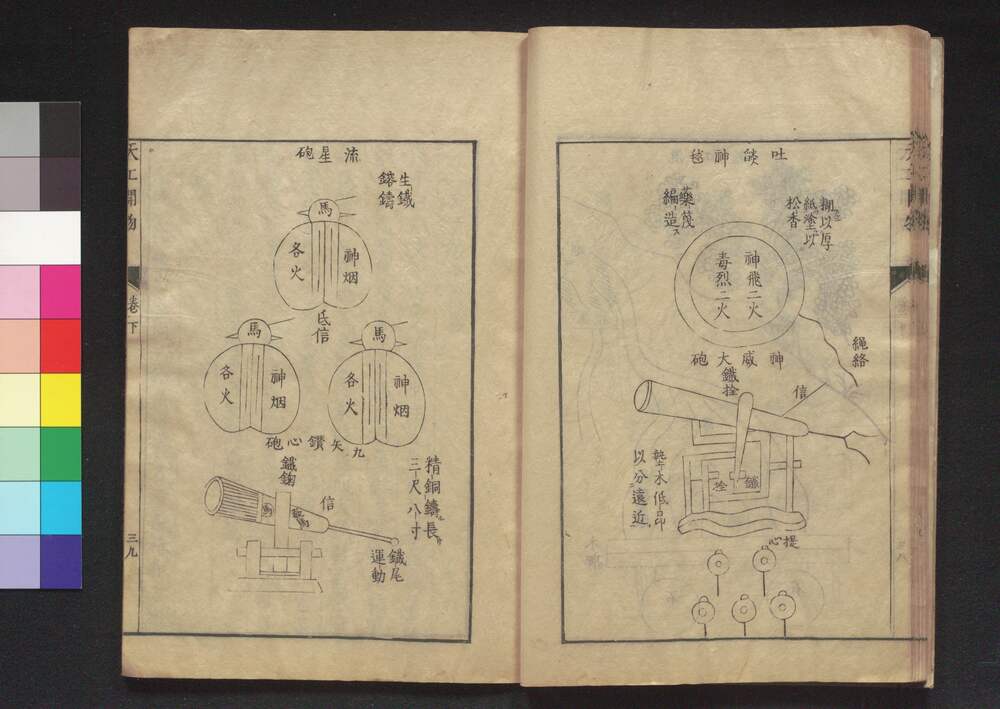 吐燄神毬
糊以厚
紙塗以
松香
藥篾
編造ス
神飛二火
毒烈二火
繩絡
神威大砲
鐵拴
信
墊木低昂
以分遠近
拴
提心
流星砲
生鐵
鎔鑄
馬
神烟
各火
氐信
馬
神烟
各火
馬
神烟
各火
九矢鑽心砲
精銅鑄長
三尺八寸
信
鐵尾
運動
天工開物
卷下
三九